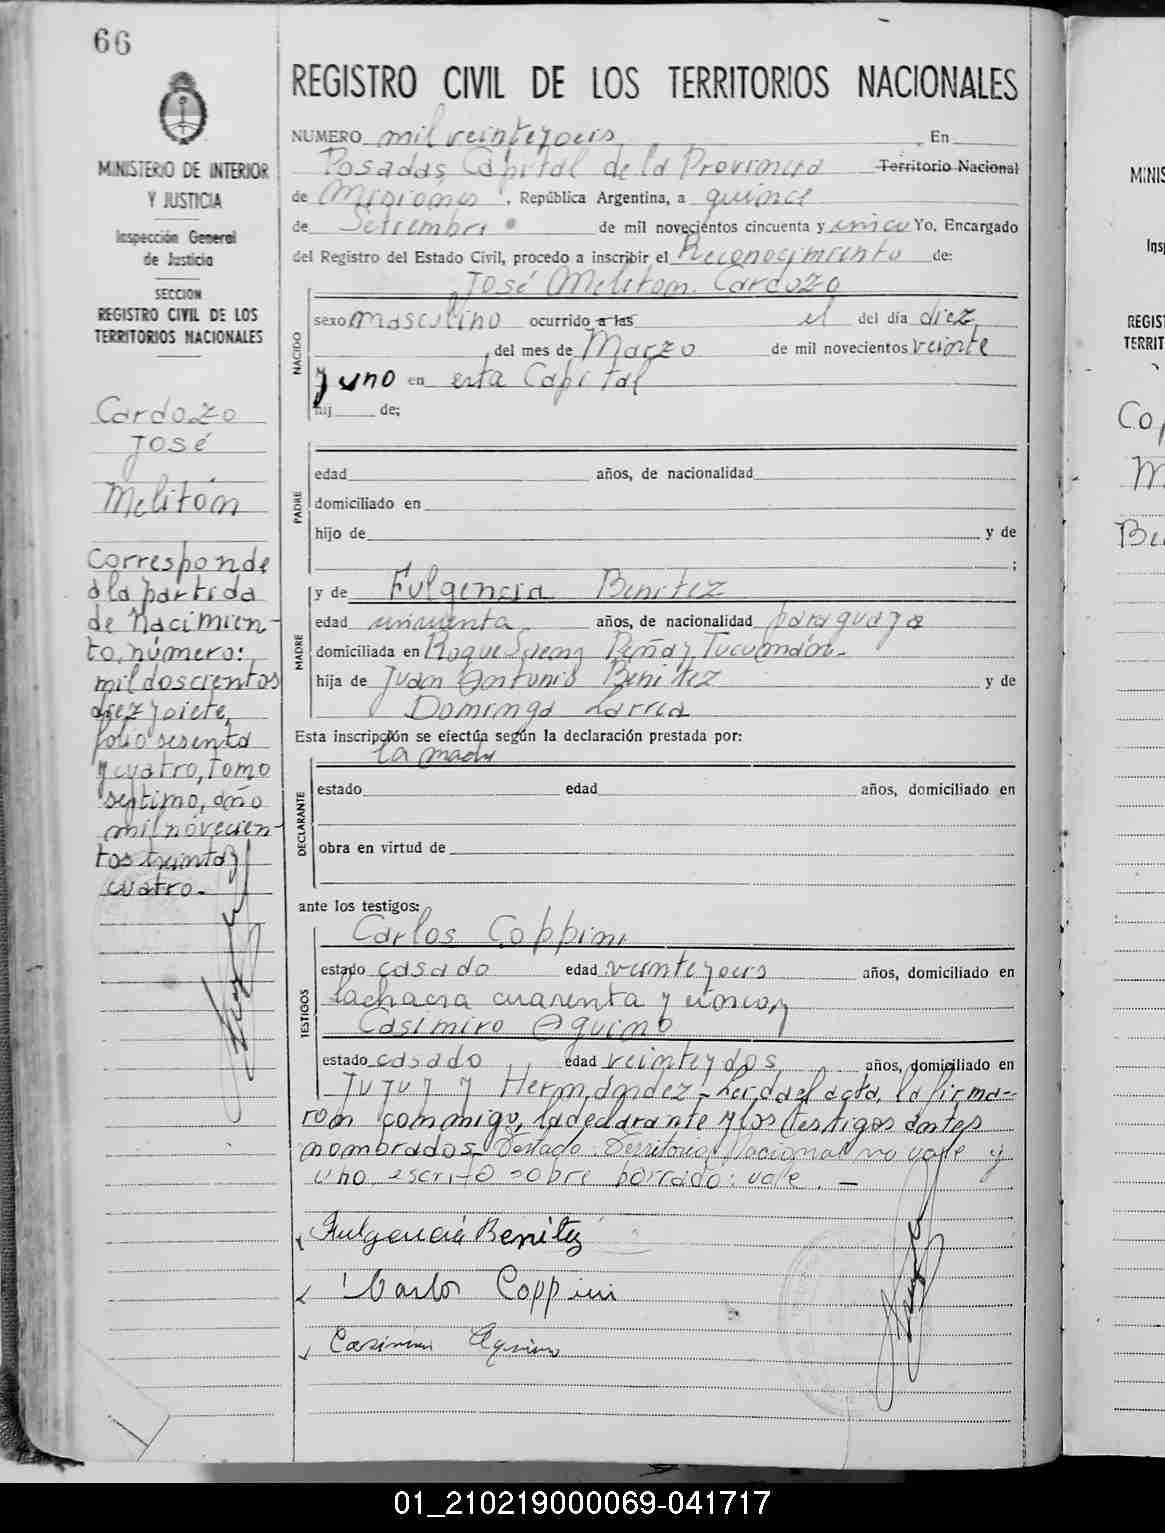 66
MINISTERIO DE INTERIOR
Y JUSTICIA
Inspección General
de Justicia
SECCION
REGISTRO CIVIL DE LOS
TERRITORIOS NACIONALES
Cardozo
José
Melitón
Corresponde
a la partida
de Nacimien-
to, número:
mil doscientos
diez y siete,
folio sesenta
y cuatro, tomo
septimo, año
mil novecien-
tos treinta y
cuatro.-
REGISTRO CIVIL DE LOS TERRITORIOS NACIONALES
NUMERO mil veinteyseis En
Posadas, Capital de la Provincia Territorio Nacional
de Misiones, República Argentina, a quince
de Setiembre de mil novecientos cincuenta y cinco Yo, Encargado
del Registro del Estado Civil, procedo a inscribir el Reconocimiento de:
José Meliton Cardozo
NACIDO
sexo masculino ocurrido a las el del día diez
del mes de Marzo de mil novecientos veinte
y uno en esta Capital
hij de;
PADRE
edad años, de nacionalidad
domiciliado en
hijo de y de
;
MADRE
y de Fulgencia Benitez
edad cincuenta años, de nacionalidad paraguaya
domiciliada en Roque Saenz Peña y Tucumán-
hija de Juan Antonio Benitez y de
Dominga Larrea
Esta inscripción se efectúa según la declaración prestada por:
la madre
DECLARANTE
estado edad años, domiciliado en
obra en virtud de
ante los testigos:
TESTIGOS
Carlos Coppini
estado casado edad veinteyseis años, domiciliado en
la chacra cuarenta y cinco y
Casimiro Aquino
estado casado edad veinteydos años, domiciliado en
Jujuy y Hernández-Leida el acta, la firma-
ron conmigo, la declarante y los testigos antes
nombrados- Testado: Territorio Nacional no vale y
uno escrito sobre borrado: vale. -
Fulgencia Benitez
Carlos Coppini
Casimiro Aquino
MINIS
Insp
REGIST
TERRIT
01_210219000069-041717